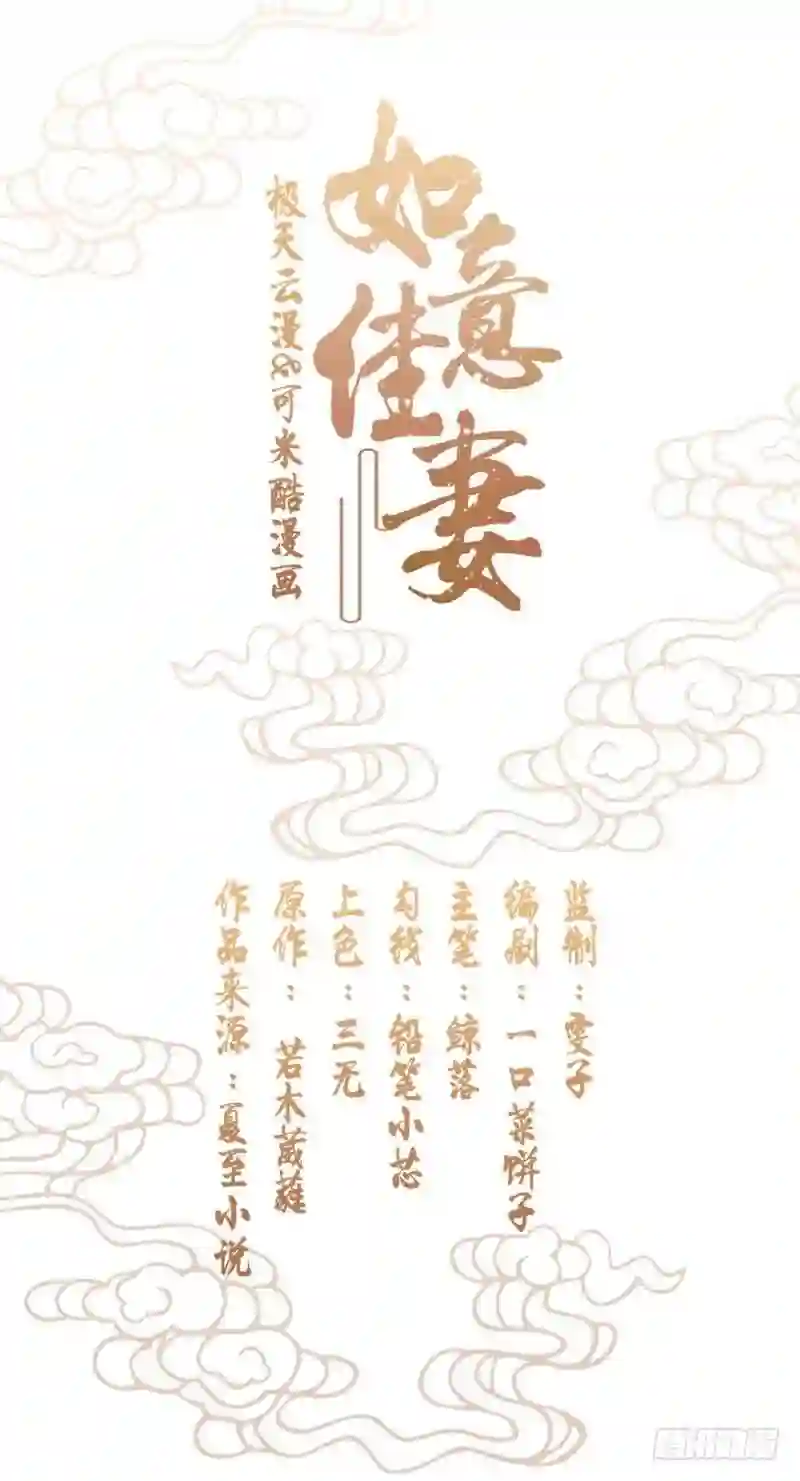 如意佳妻
极天云漫&可米酷漫画
监制：雯子
编剧：一口菜饼子
主笔：鲸落
勾线：铅笔小芯
上色：三无
原作：若木葳蕤
作品来源：夏至小说